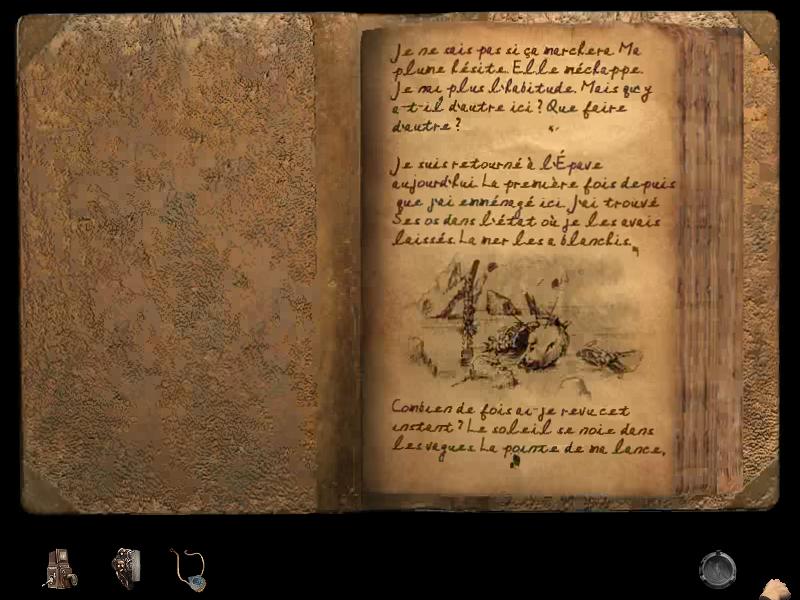 Je ne sais pas si ça marchera. Ma
plume hésite. Elle m'échappe.
Je n'ai plus l'habitude. Mais qu'y
a-t-il d'autre ici ? Que faire
d'autre ?
Je suis retourné à l'Épave
aujourd'hui. La première fois depuis
que j'ai emménagé ici. J'ai trouvé
Ses os dans l'état où je les avais
laissés. La mer les a blanchis.
Combien de fois ai-je revu cet
instant ? Le soleil se noie dans
les vagues. La pointe de ma lance,